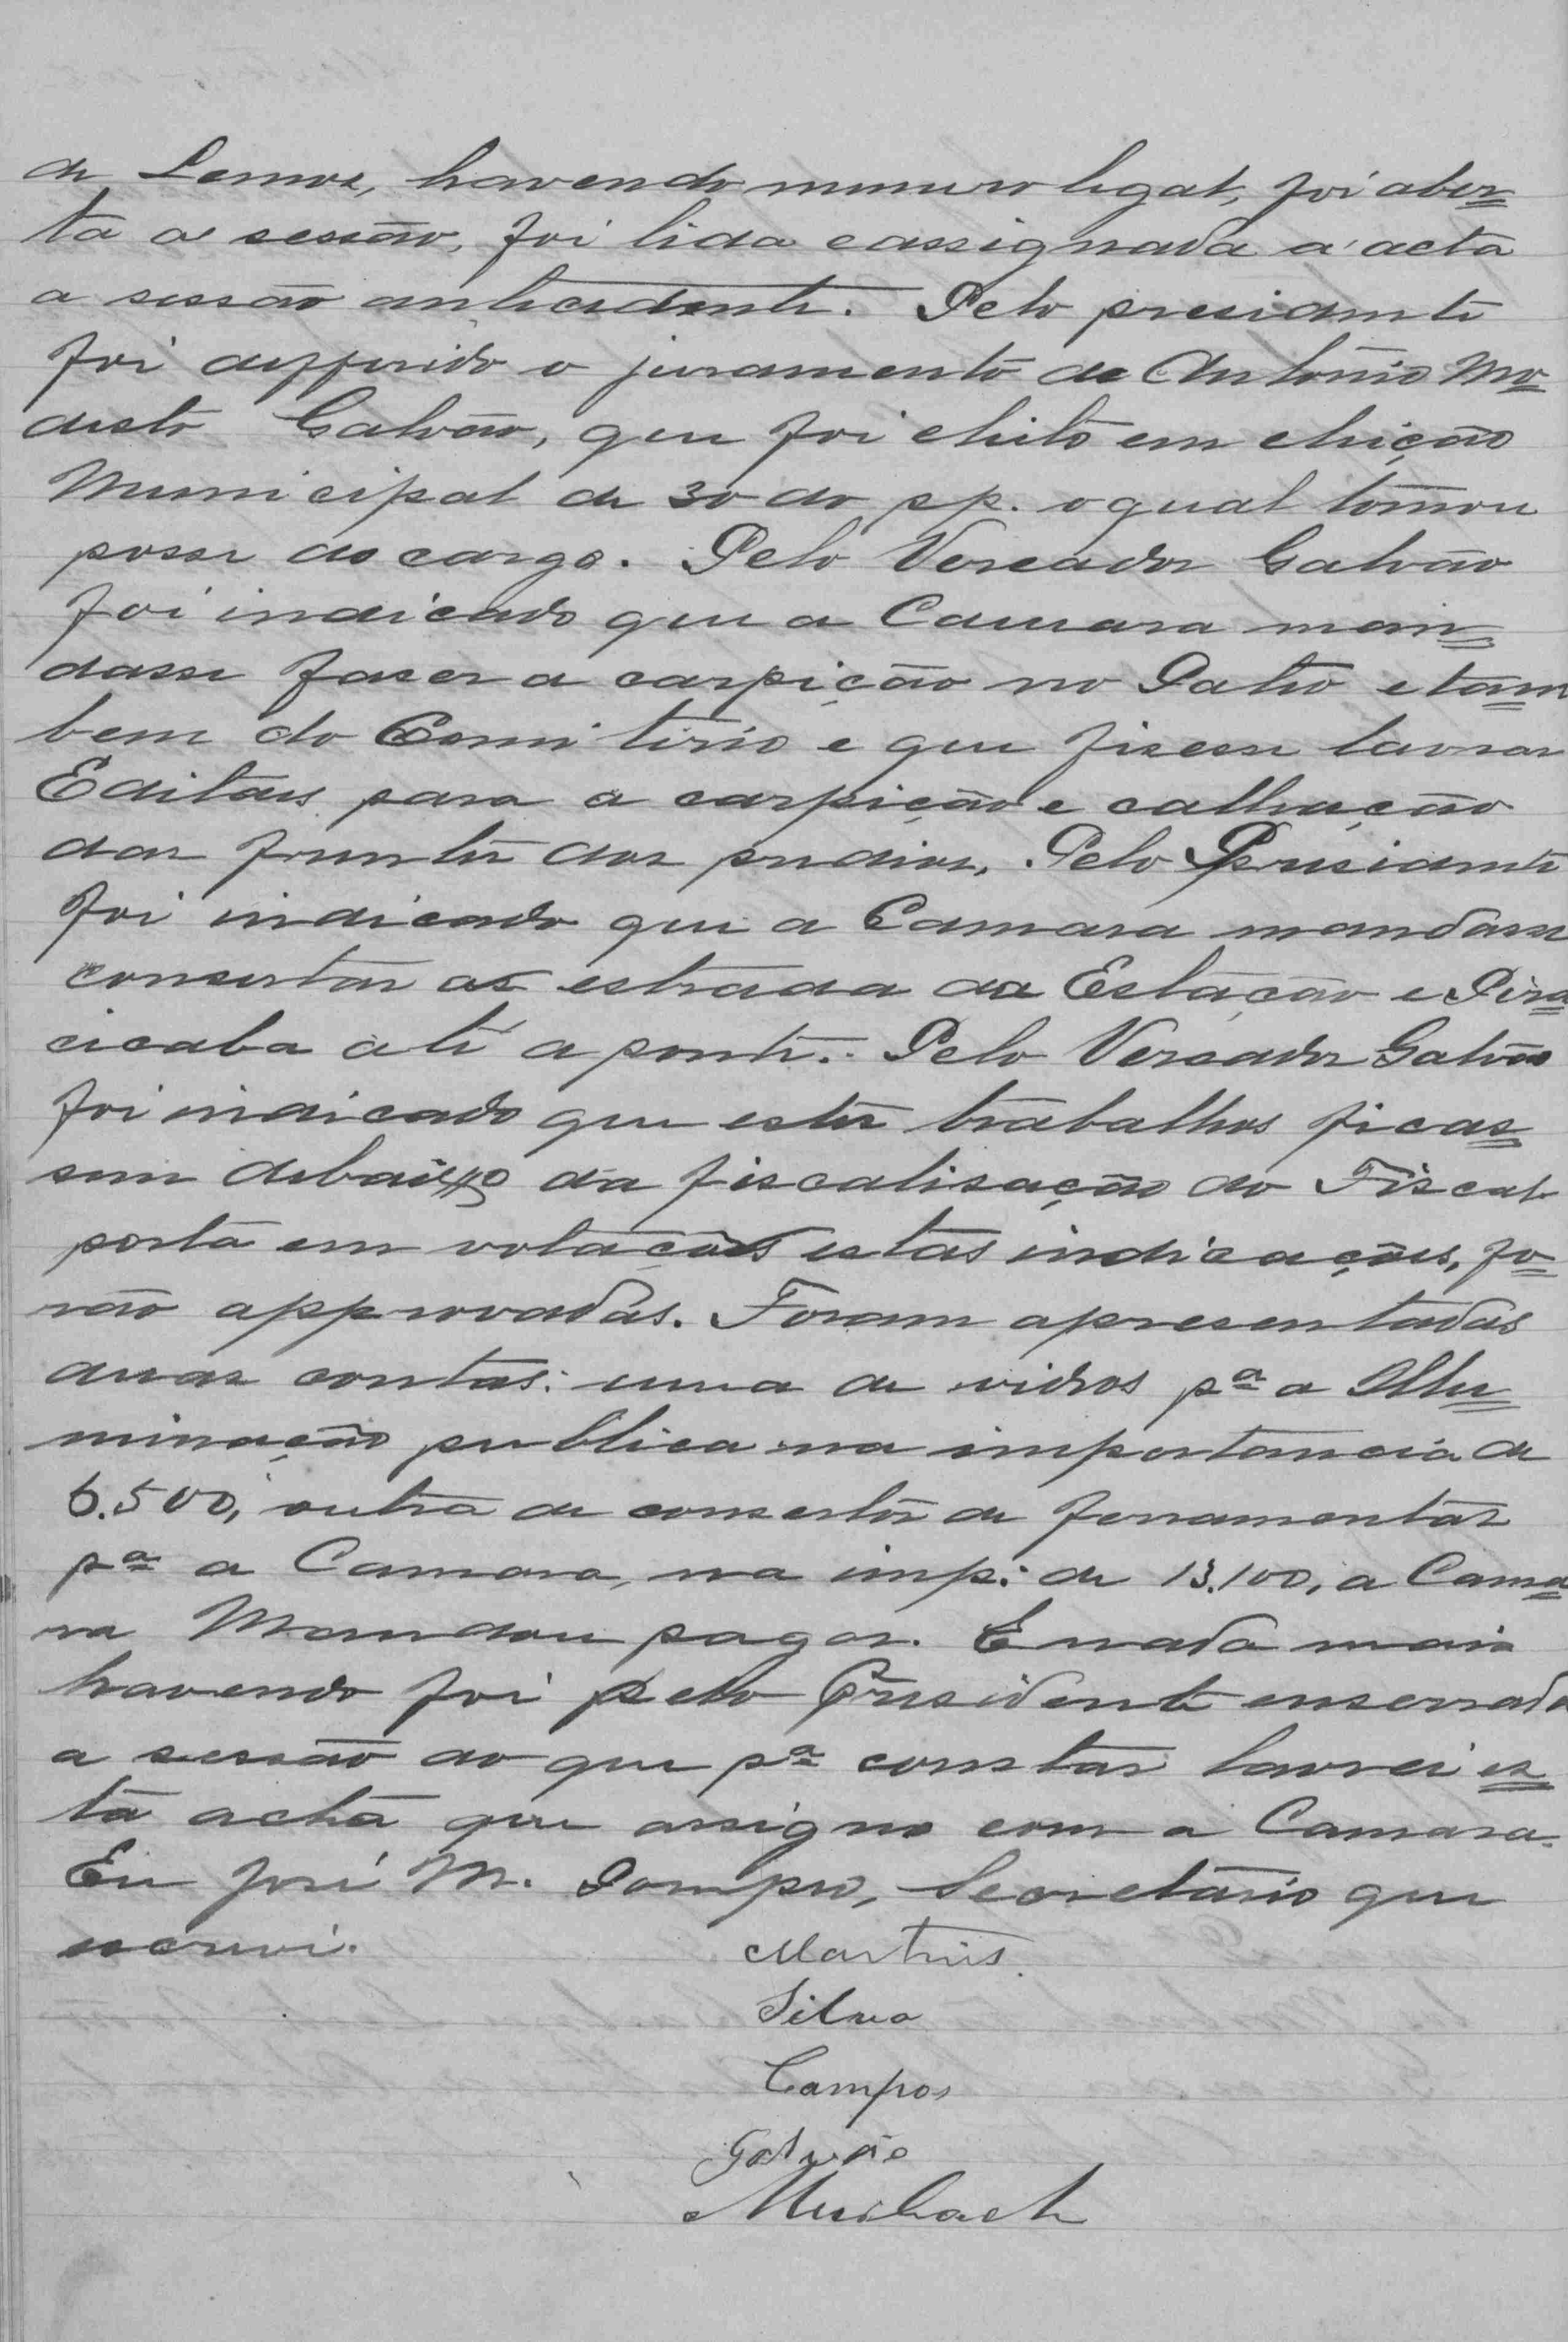 de Lemos, havendo numero legal, foi aber=
ta a sessão, foi lida e assignada a acta
a sessão antecedente. Pelo presidente
foi defferido o juramento de Antonio Mo=
desto Galvão, que foi eleito em eleição
Municipal de 30 do p.p. o qual tomou
posse do cargo. Pelo Vereador Galvão
foi indicado que a Camara man=
dasse faser a carpição no Patio e tam
bem do Cemiterio e que fisesse lavrar
Editaes para a carpição e calheação
das frentes dos predios. Pelo Presidente
foi indicado que a Camara mandasse
consertar as estrada da Estação e Pira=
cicaba até a ponte. Pelo Vereador Galvão
foi indicado que estes trabalhos ficas=
sem debaixo da fiscalisação do Fiscal
posta em votações estas indicações, fo=
rão approvadas. Foram apresentadas
duas contas: uma de vidros pª a Illu=
minação publica na importancia de
6.500, outra de consertos de ferramentas
pª a Camara, na imp: de 13.100, a Cama=
ra Mandou pagar. E nada mais
havendo foi pelo Presidente enserrada
a sessão do que pª constar lavrei es=
ta acta que assigno com a Camara.
Eu José M. Pompeo, Secretario que
escrevi.
Martins.
Silva
Campos
Galvão